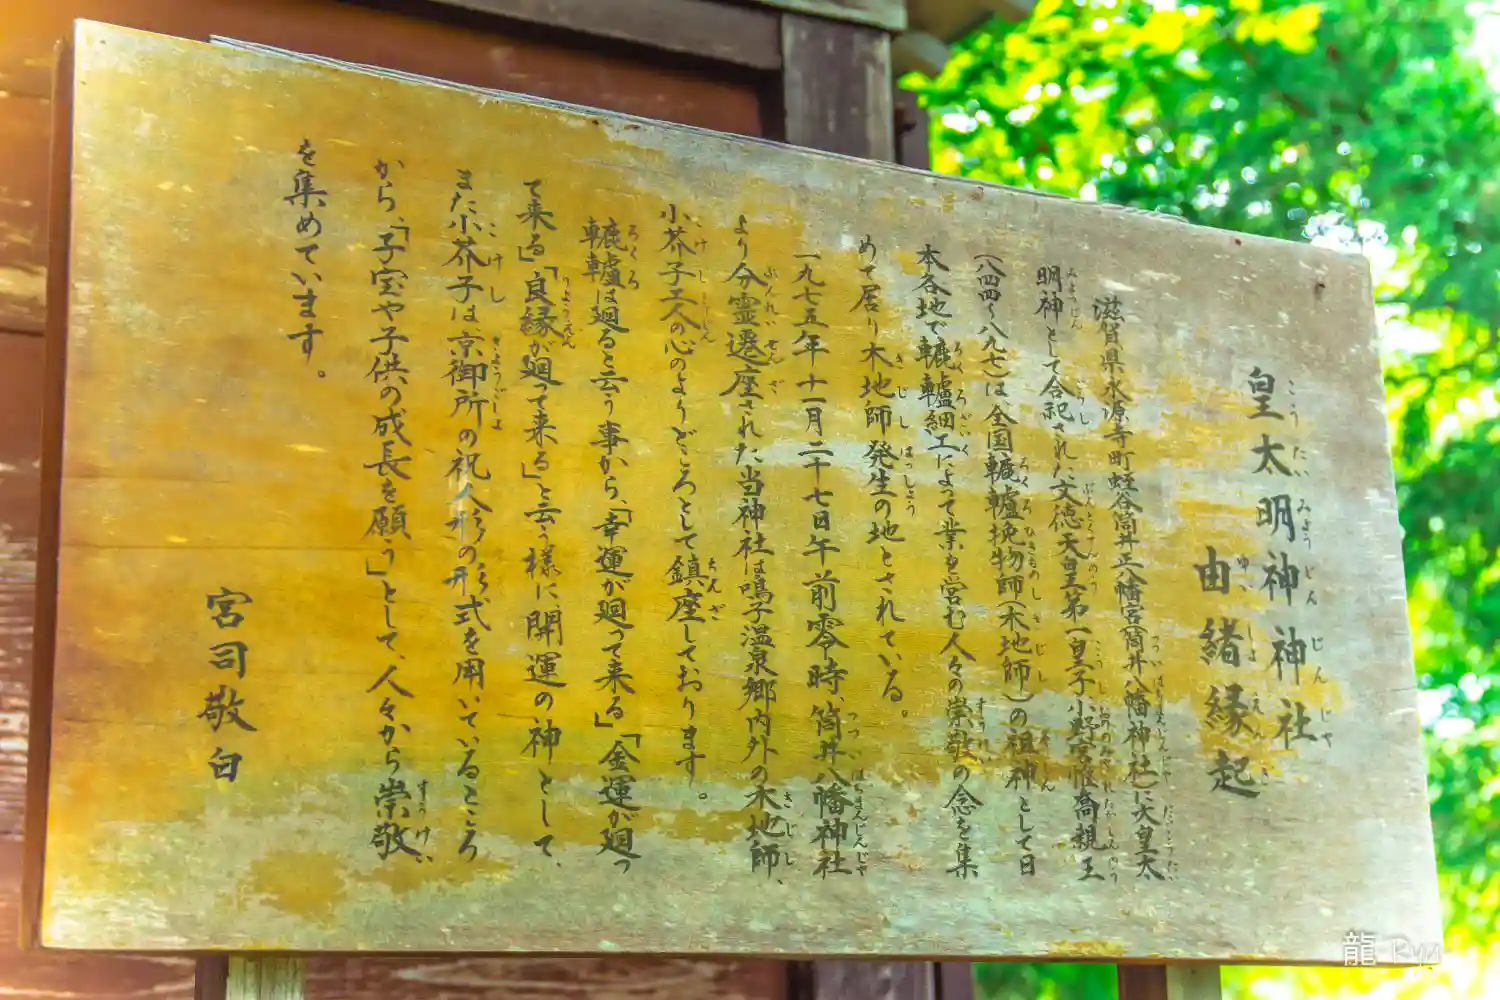 皇太明神神社
由緒縁起
滋賀県永源寺町蛭谷筒井正八幡宮(筒井八幡神社)に大皇太
明神として合祀された文徳天皇第一皇子小野宮惟喬親王
(八四四〜八九七)は全国轆轤挽物師(木地師)の祖神として日
本各地で轆轤細工によって業を営む人々の崇敬の念を集
めて居り木地師発生の地とされている。
一九七五年十一月二十七日午前零時、筒井八幡神社
より分霊遷座された当神社は鳴子温泉郷内外の木地師、
小芥子工人の心のよりどころとして鎮座しております。
轆轤は廻ると云う事から、「幸運が廻って来る」「金運が廻っ
て来る」「良縁が廻って来る」と云う様に開運の神として、
また小芥子は、京御所の祝人形の形式を用いているところ
から、「子宝や子供の成長を願う」として、人々から崇敬
を集めています。
宮司敬白
龍 Ryu